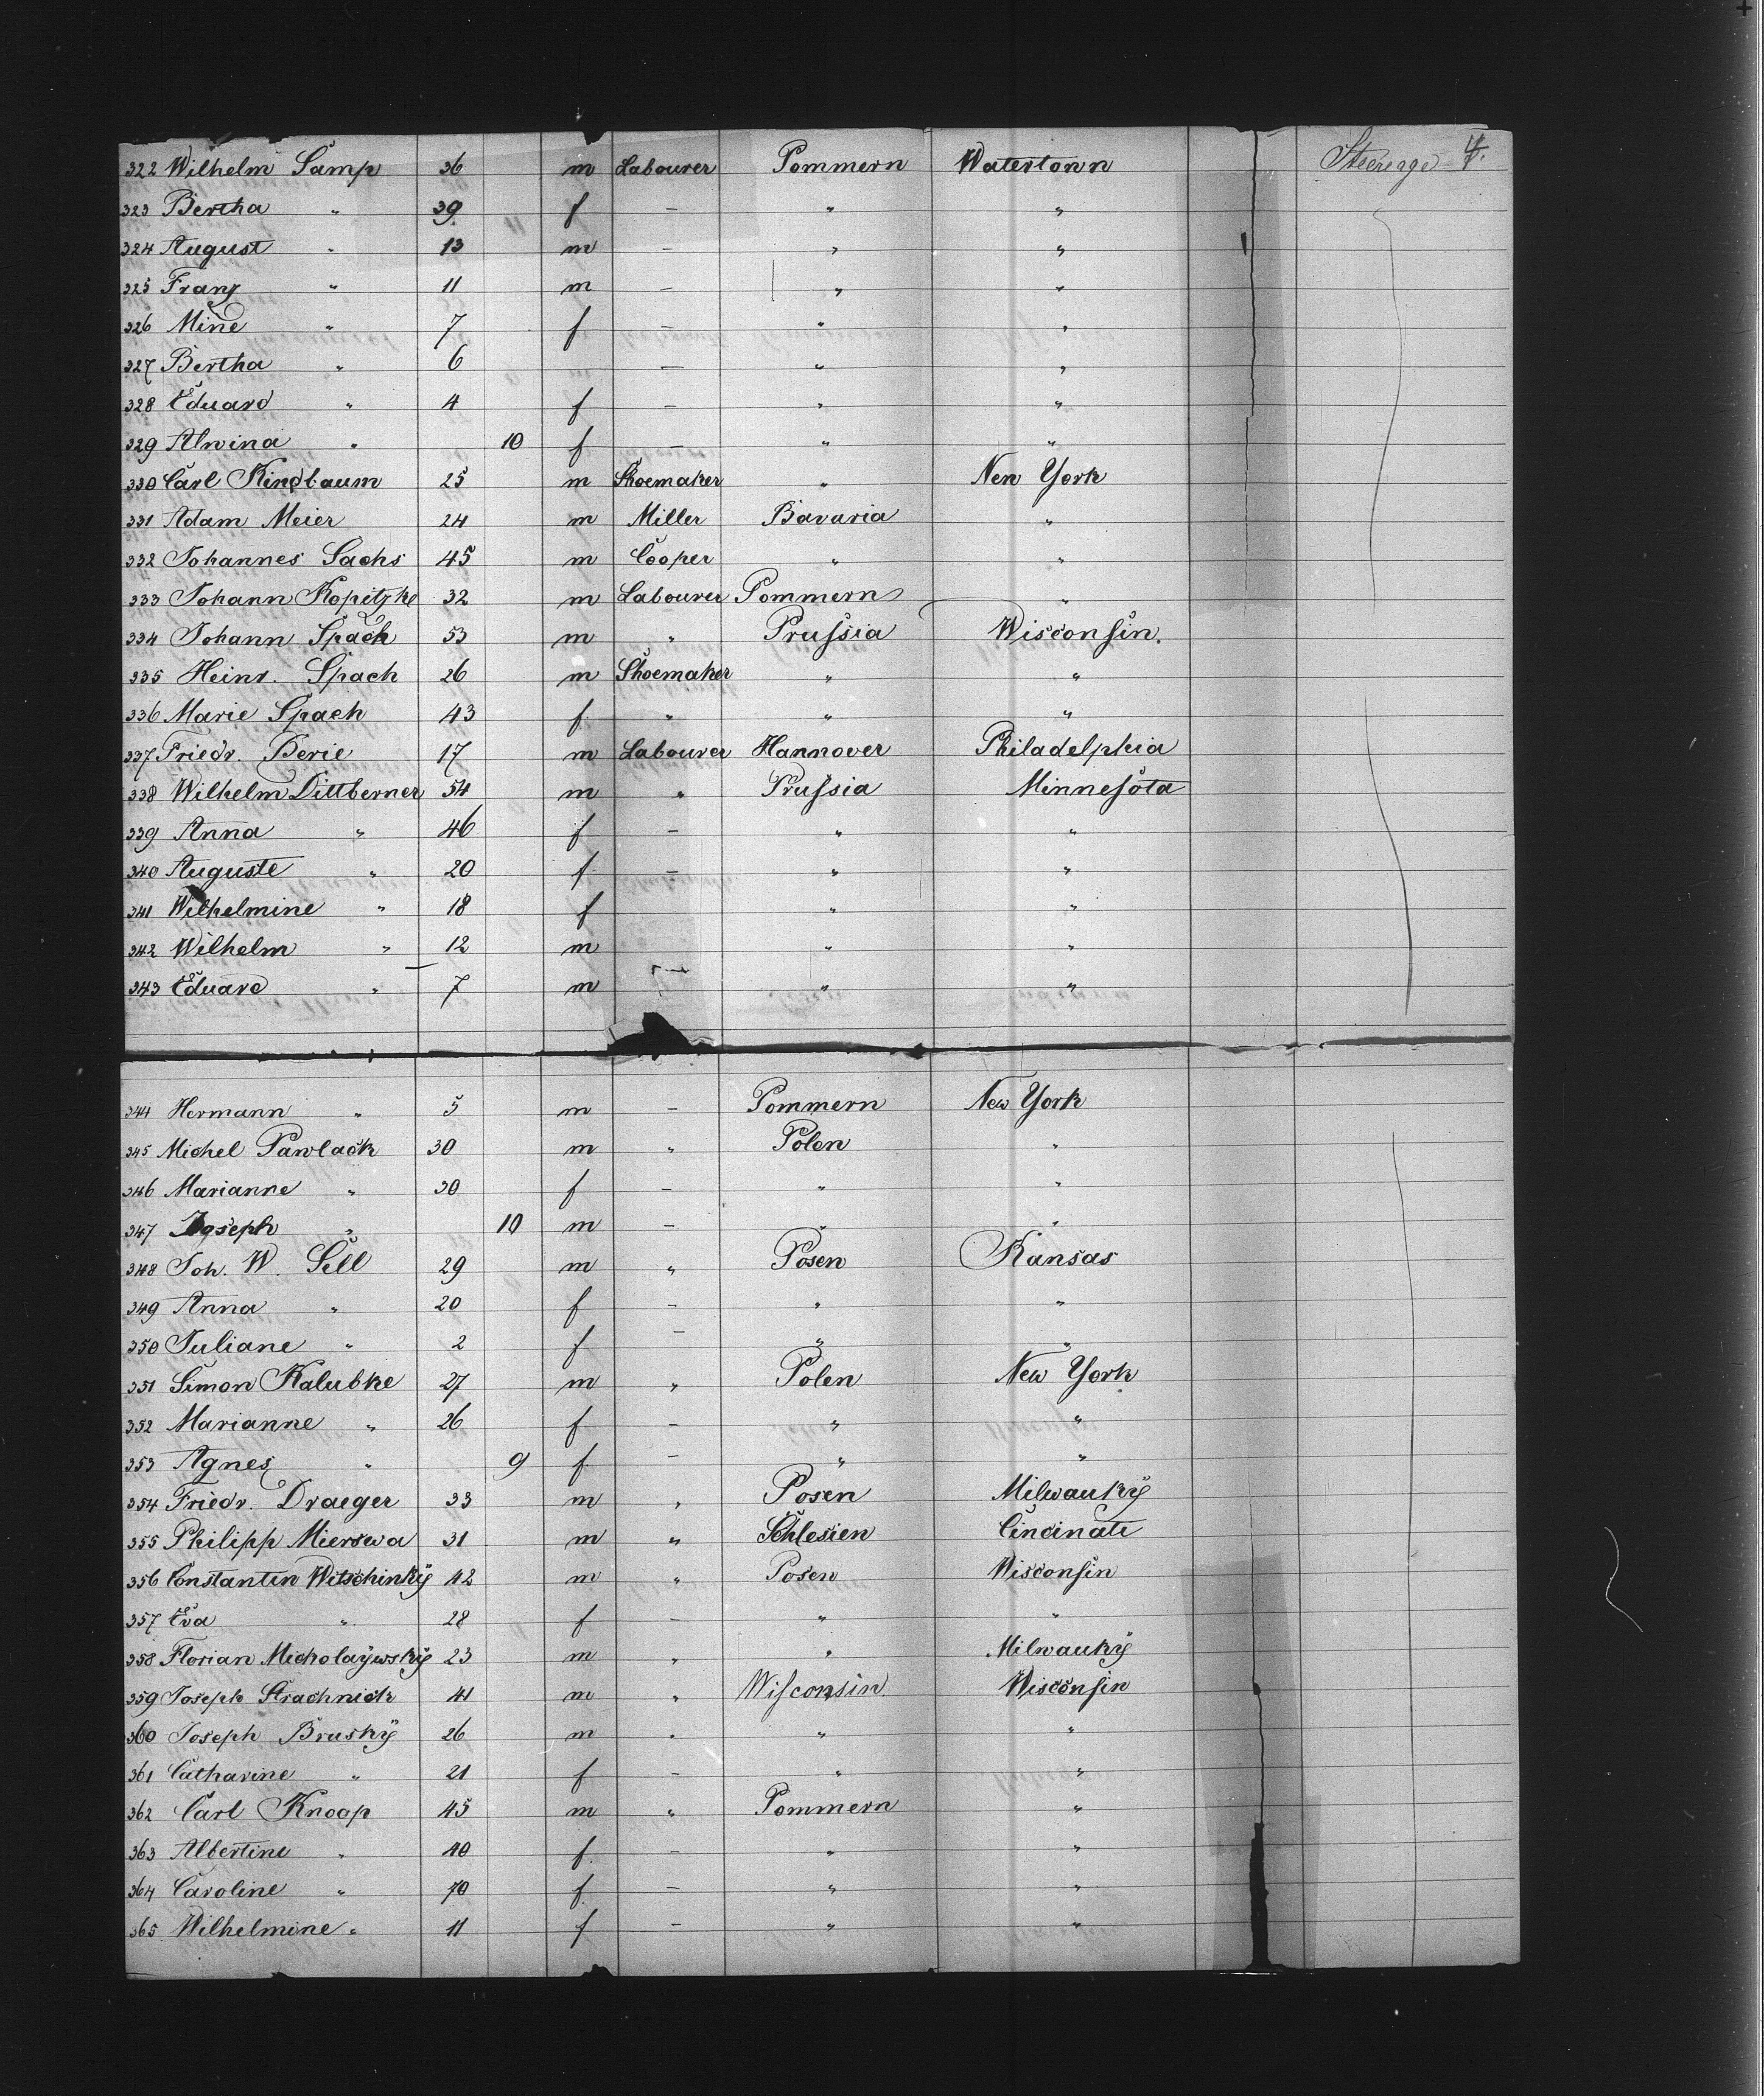 322 Wilhelm Samp 36 m Labourer Pommern Watertown Steerage 4.
323 Bertha " 39. f — " "
324 August " 13 m — " "
325 Franz " 11 m — " "
326 Mine " 7 f — " "
327 Bertha " 6 — " "
328 Eduard " 4 f — " "
329 Alwina " 10 f — " "
330 Carl Kindbaum 25 m Shoemaker " New York
331 Adam Meier 24 m Miller Bavaria "
332 Johannes Sachs 45 m Cooper " "
333 Johann Kopitzke 32 m Labourer Pommern "
334 Johann Spach 53 m " Prussia Wisconsin.
335 Heinr. Spach 26 m Shoemaker " "
336 Marie Spach 43 f " " "
337 Friedr. Berie 17 m Labourer Hannover Philadelphia
338 Wilhelm Dittberner 54 m " Prussia Minnesota
339 Anna " 46 f — " "
340 Auguste " 20 f — " "
341 Wilhelmine " 18 f " "
342 Wilhelm " 12 m " "
343 Eduard " 7 m " "
344 Hermann " 5 m — Pommern New York
345 Michel Pawlack 30 m " Polen "
346 Marianne " 30 f — " "
347 Joseph " 10 m — " "
348 Joh. W. Sell 29 m " Posen Kansas
349 Anna " 20 f — " "
350 Juliane " 2 f — " "
351 Simon Kalubke 27 m " Polen New York
352 Marianne " 26 f — " "
353 Agnes " 9 f — " "
354 Friedr. Draeger 33 m " Posen Milwauky
355 Philipp Mierswa 31 m " Schlesien Cincinati
356 Constantin Witschinky 42 m " Posen Wisconsin
357 Eva " 28 f — " "
358 Florian Mickolaywsky 23 m " " Milwauky
359 Joseph Strachnick 41 m " Wisconsin. Wisconsin
360 Joseph Brusky 26 m " " "
361 Catharine " 21 f — " "
362 Carl Knoop 45 m " Pommern "
363 Albertine " 40 f. — " "
364 Caroline " 70 f. — " "
365 Wilhelmine " 11 f — " "